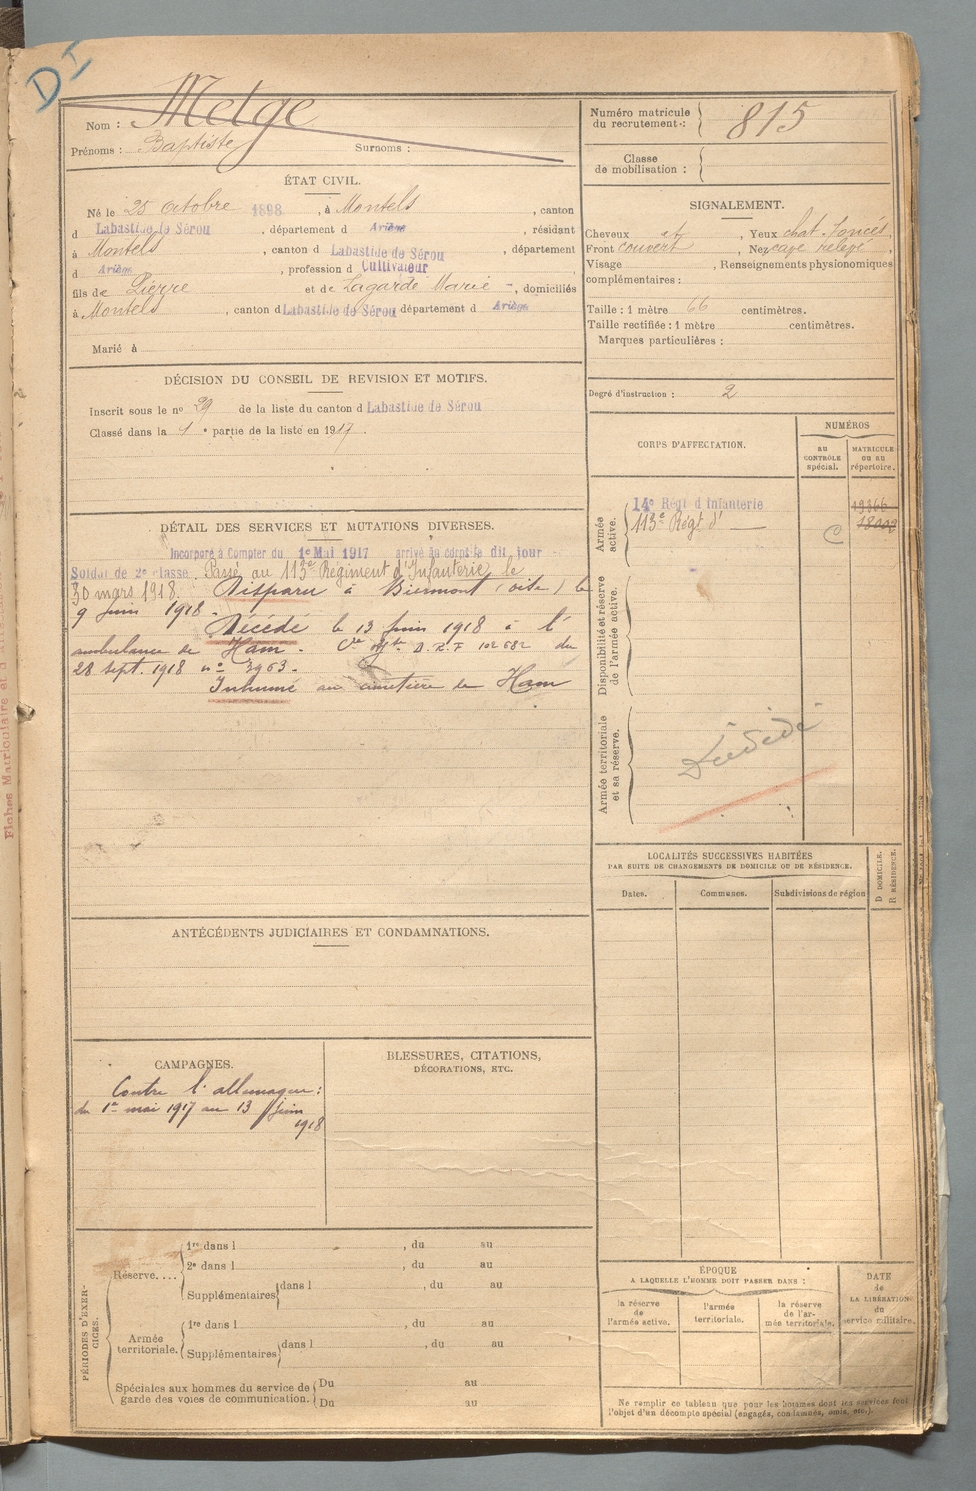 DI
Nom : Metge
Prénoms : Baptiste Surnoms :
Numéro matricule du recrutement : 815
Classe de mobilisation :
ÉTAT CIVIL.
Né le 25 octobre 1898, à Montels, canton
d Labastide de Sérou, département d Ariège, résidant
à Montels, canton d Labastide de Sérou, département
d Ariège, profession d Cultivateur
fils de Pierre et de Lagarde Marie, domiciliés
à Montels, canton d Labastide de Sérou, département d Ariège
Marié à
SIGNALEMENT.
Cheveux ch, Yeux chat. foncés,
Front couvert, Nez cave relevé,
Visage, Renseignements physionomiques
complémentaires :
Taille : 1 mètre 66 centimètres.
Taille rectifiée : 1 mètre centimètres.
Marques particulières :
Degré d'instruction : 2
DÉCISION DU CONSEIL DE REVISION ET MOTIFS.
Inscrit sous le nº 29 de la liste du canton d Labastide de Sérou
Classé dans la 1e partie de la liste en 1917.
CORPS D'AFFECTATION.
NUMÉROS
AU CONTRÔLE spécial.
MATRICULE OU AU répertoire.
Armée active.
14e Régt d'Infanterie 19366
113e Régt d' — 18002
C
Disponibilité et réserve de l'armée active.
Armée territoriale et sa réserve.
Décédé
DÉTAIL DES SERVICES ET MUTATIONS DIVERSES.
Incorporé à Compter du 1e Mai 1917 arrivé au corps le dit jour
Soldat de 2e classe. Passé au 113e Régiment d'Infanterie le
30 mars 1918. Disparu à Biermont (oise) le
9 juin 1918.
Décédé le 13 juin 1918 à l'
ambulance de Ham. D.R.F 102682 du
28 sept. 1918 nº 3963.
Inhumé au cimetière de Ham
LOCALITÉS SUCCESSIVES HABITÉES
PAR SUITE DE CHANGEMENTS DE DOMICILE OU DE RÉSIDENCE.
Dates. Communes. Subdivisions de région
D DOMICILE. R RÉSIDENCE.
ANTÉCÉDENTS JUDICIAIRES ET CONDAMNATIONS.
CAMPAGNES.
Contre l'allemagne :
du 1er mai 1917 au 13 juin
1918
BLESSURES, CITATIONS,
DÉCORATIONS, ETC.
PÉRIODES D'EXERCICES.
Réserve....
1re dans l, du au
2e dans l, du au
Supplémentaires dans l, du au
Armée territoriale.
1re dans l, du au
Supplémentaires dans l, du au
Spéciales aux hommes du service de garde des voies de communication.
Du au
Du au
ÉPOQUE
A LAQUELLE L'HOMME DOIT PASSER DANS :
la réserve de l'armée active.
l'armée territoriale.
la réserve de l'armée territoriale.
DATE de LA LIBÉRATION du service militaire.
Ne remplir ce tableau que pour les hommes dont les services font
l'objet d'un décompte spécial (engagés, condamnés, omis, etc.).